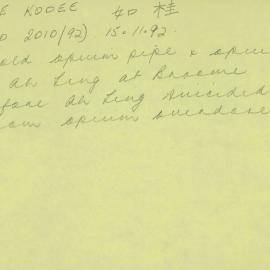 E KODEE 如桂
D 2010/92). 15.11.92.
old opium pipe & opiu
Ah Ling at Broome
fore Ah Ling suicided
om opium overdose